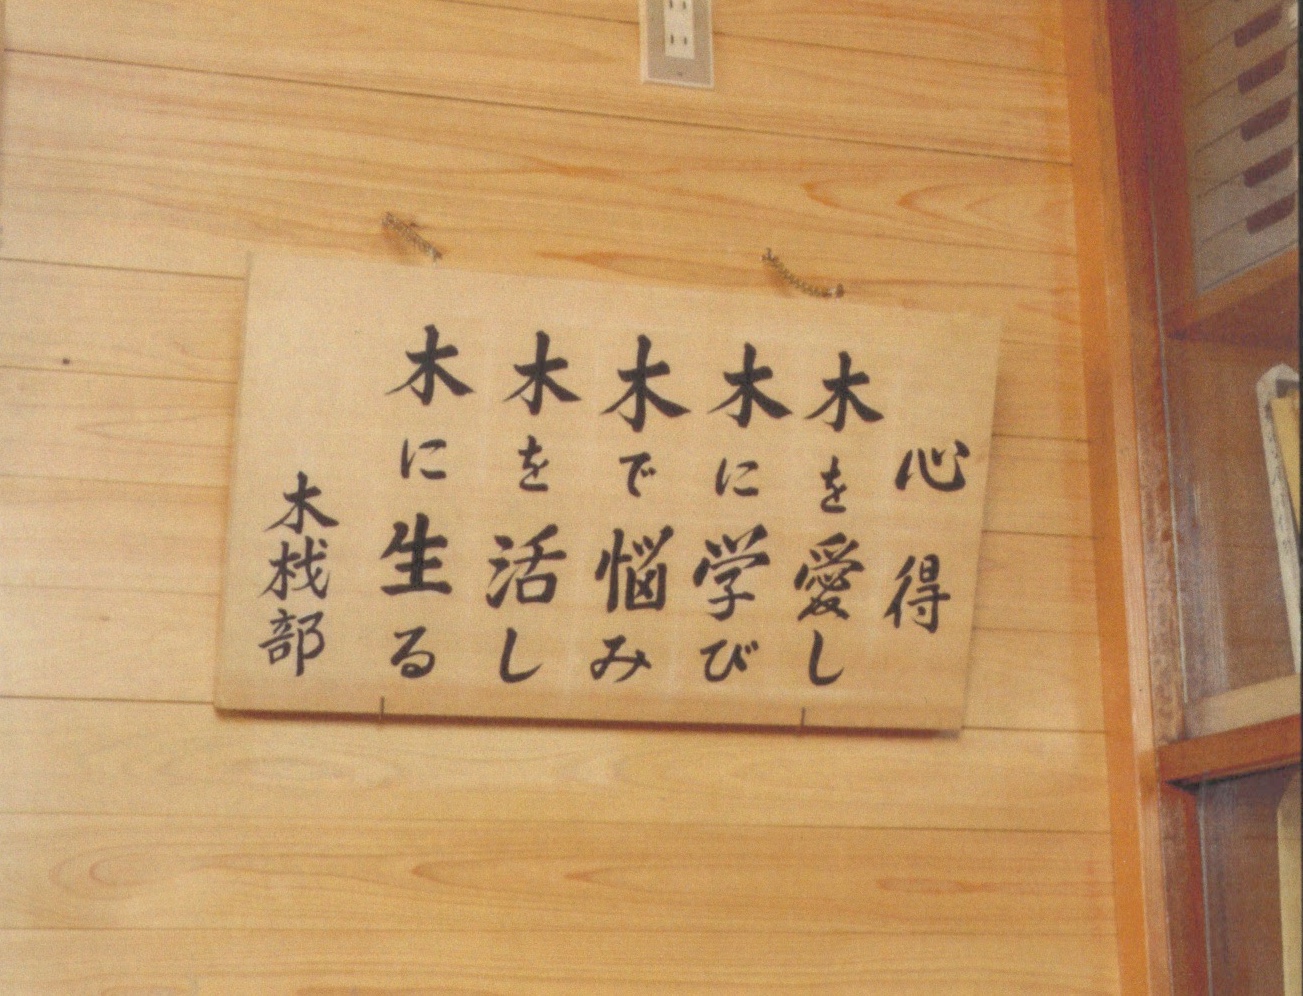 心得
木を愛し
木に学び
木で悩み
木を活し
木に生る
木栈部